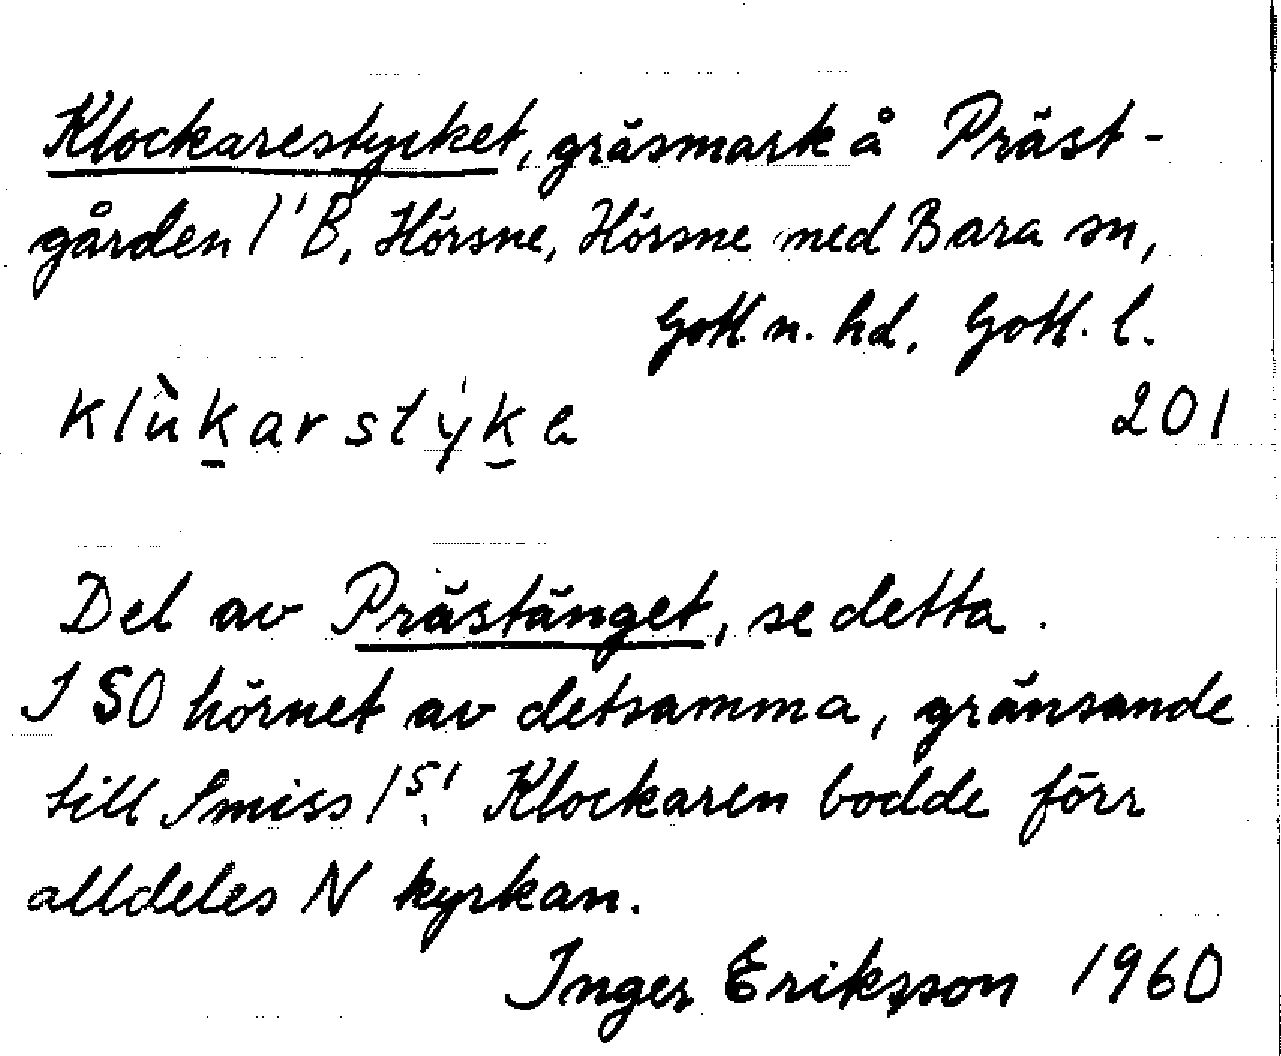 Klockarestycket, gräsmark å Präst-
gården 1¹ B, Hörsne, Hörsne med Bara sn,
Gotl. n. hd, Gotl. l.
klùk̠arstýk̠e 201
Del av Prästänget, se detta.
I SO hörnet av detsamma, gränsande
till Smiss 1⁵. Klockaren bodde förr
alldeles N kyrkan.
Inger Eriksson 1960